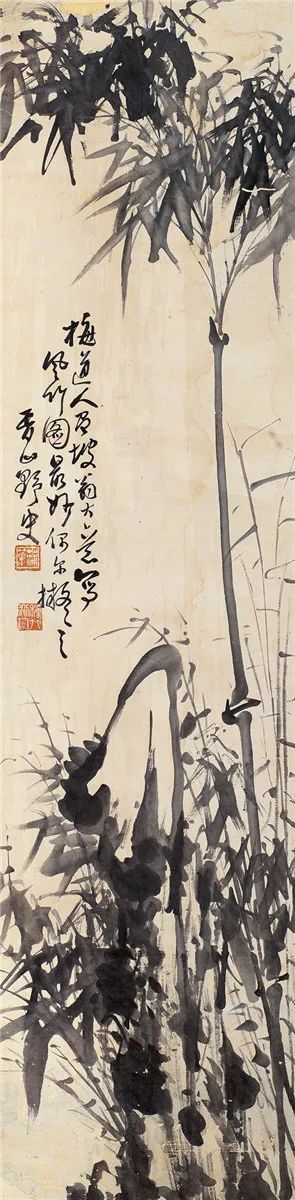 梅道人為坡翁大意寫
風竹圖最妙偶尔擬之
胥山野史